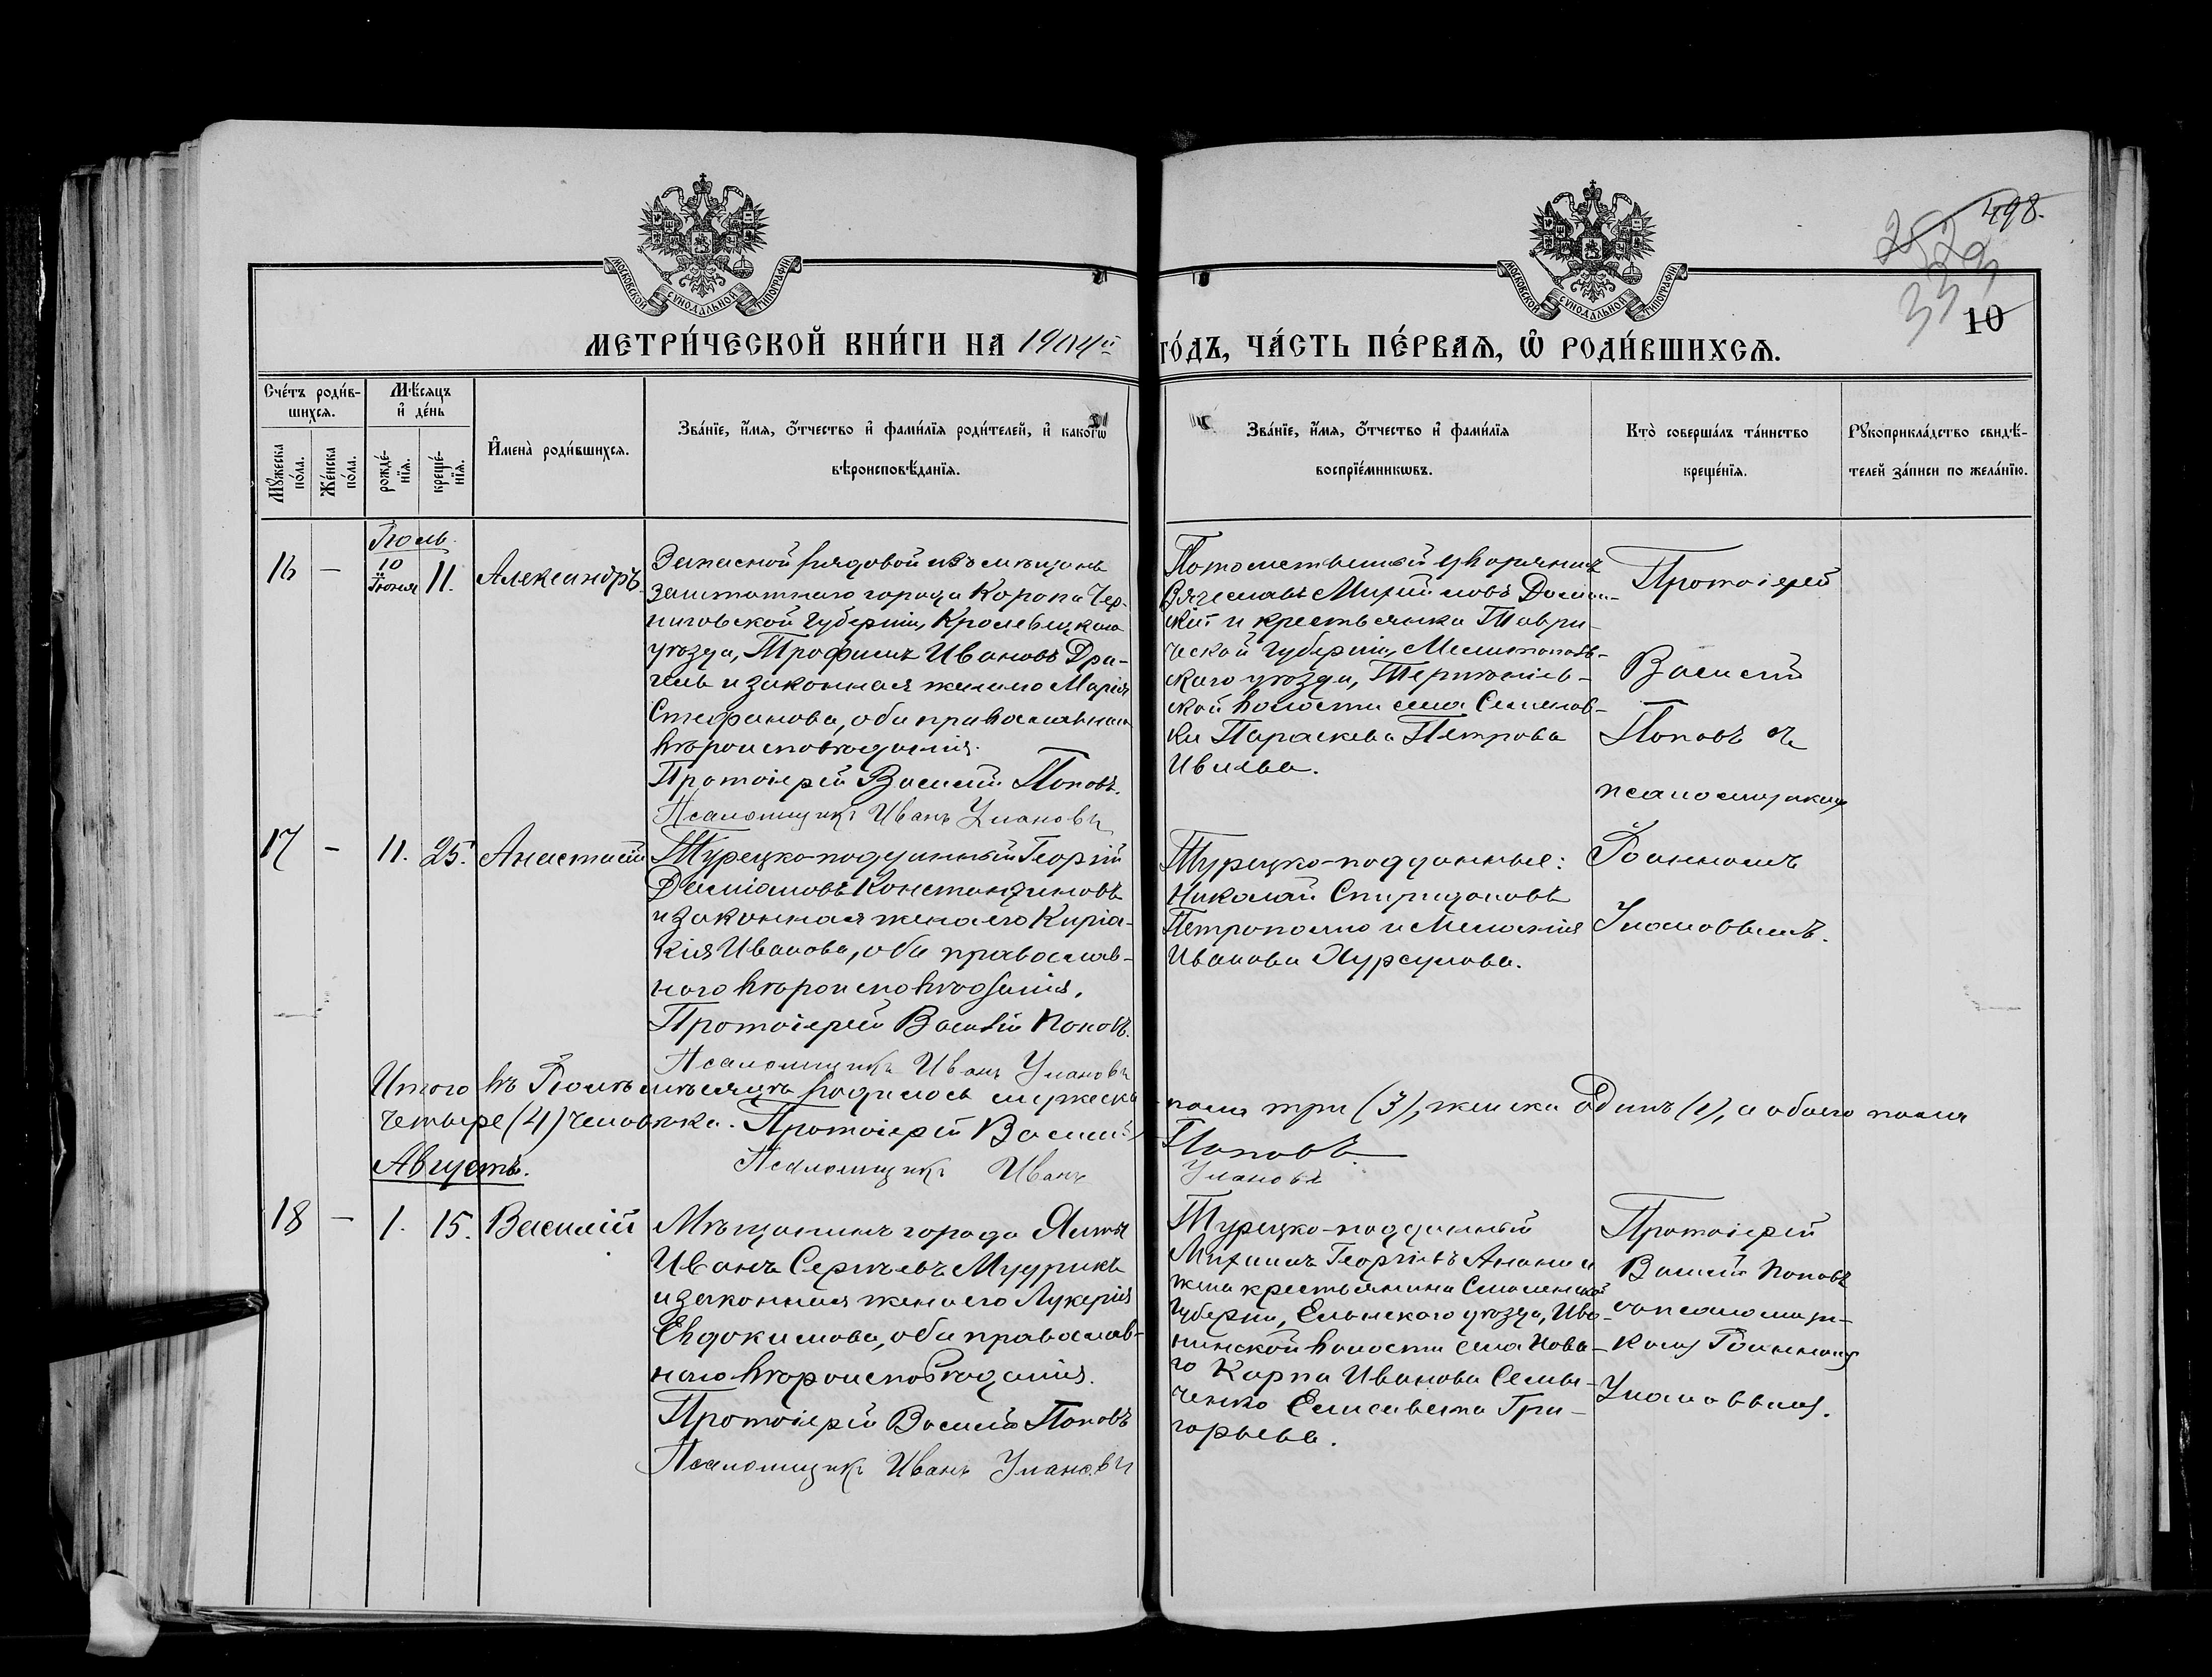 МОСКОВСКОЙ СѴНОДАЛЬНОЙ ТИПОГРАФІИ
МОСКОВСКОЙ СѴНОДАЛЬНОЙ ТИПОГРАФІИ
498.
10
МЕТРИ́ЧЕСКОЙ КНИ́ГИ НА 1904й
ГО́ДЪ, ЧА́СТЬ ПЕ́РВАѦ, Ѽ РОДИ́ВШИХСѦ.
Сче́тъ роди́в-
шихсѧ.
Мѣ́сяцъ
и҆ де́нь
Мꙋ́жеска по́ла.
Же́нска по́ла.
рожде́-
нїѧ.
креще́-
нїѧ.
И҆мена̀ роди́вшихсѧ.
Зва́нїе, и҆́мѧ, ѻ҆́тчество и҆ фами́лїѧ роди́телей, и҆ како́гѡ
вѣроисповѣ́данїѧ.
Зва́нїе, и҆́мѧ, ѻ҆́тчество и҆ фами́лїѧ
воспрїе́мникѡвъ.
Кто̀ соверша́лъ та́инство
креще́нїѧ.
Рꙋкоприкла́дство свидѣ́-
телей за́писи по жела́нїю.
Іюль.
16 — 10 Іюня 11. Александръ.
Запасной рядовой изъ мѣщанъ
заштатнаго города Коропа Чер-
ниговской Губерніи, Кролевецкаго
уѣзда, Трофимъ Ивановъ Дра-
гель и законная жена его Марія
Стефанова, оба православнаго
вѣроисповѣданія.
Протоіерей Василій Поповъ.
Псаломщикъ Иванъ Улановъ
Потомственный дворянинъ
Вячеславъ
скій и крестьянка Таври-
ческой Губерніи, Мелитополь-
скаго уѣзда,
ской волости села Семенов-
ки Параскева Петрова
Ивлева.
Протоіерей
Василій
Поповъ съ
псаломщикомъ
17 — 11. 25. Анастасій
Турецко-подданный Георгій
Даміановъ Константиновъ
и законная жена его Киріа-
кія Иванова, оба православ-
наго вѣроисповѣданія.
Протоіерей Василій Поповъ.
Псаломщикъ Иванъ Улановъ
Турецко-подданные:
Николай Спиридоновъ
Петрополо и Меланія
Иванова Курсулова.
Іоанномъ
Улановымъ.
Итого въ Іюлѣ мѣсяцѣ родилось мужеска пола три (3), женска одинъ (1), а обоего пола
четыре (4) человѣка. Протоіерей Василій Поповъ.
Псаломщикъ Иванъ Улановъ
Августъ.
18 — 1. 15. Василій
Мѣщанинъ города Ялты
Иванъ Сергѣевъ Мудрикъ
и законная жена его Лукерія
Евдокимова, оба православ-
наго вѣроисповѣданія.
Протоіерей Василій Поповъ
Псаломщикъ Иванъ Улановъ
Турецко-подданный
Михаилъ Георгіевъ Анани и
жена крестьянина Смоленской
Губерніи, Ельнскаго уѣзда, Ива-
нинской волости села Нова-
го Карпа Иванова Семы-
ченко Елисавета Гри-
горьева.
Протоіерей
Василій Поповъ
съ псаломщи-
комъ Іоанномъ
Улановымъ.